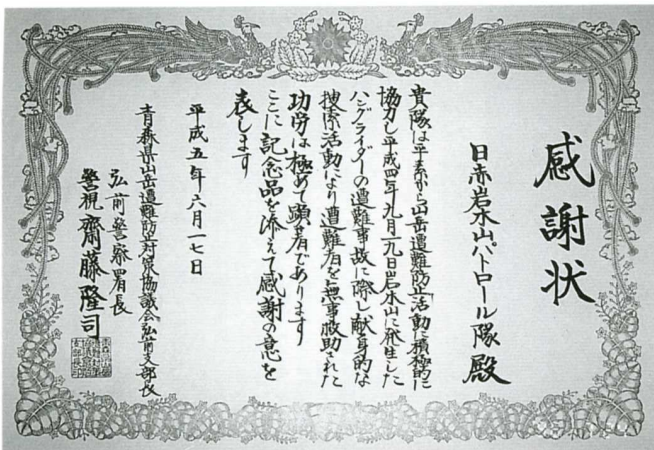 感謝状
日赤岩木山パトロール隊殿
貴隊は平素から山岳遭難防止活動に積極的に
協力し平成四年九月二九日岩木山に発生した
ハングライダーの遭難事故に際し献身的な
捜索活動により遭難者を無事救助された
功労は極めて顕著であります
ここに記念品を添えて感謝の意を
表します
平成五年六月一七日
青森県山岳遭難防止対策協議会弘前支部長
弘前警察署長
警視齋藤隆司